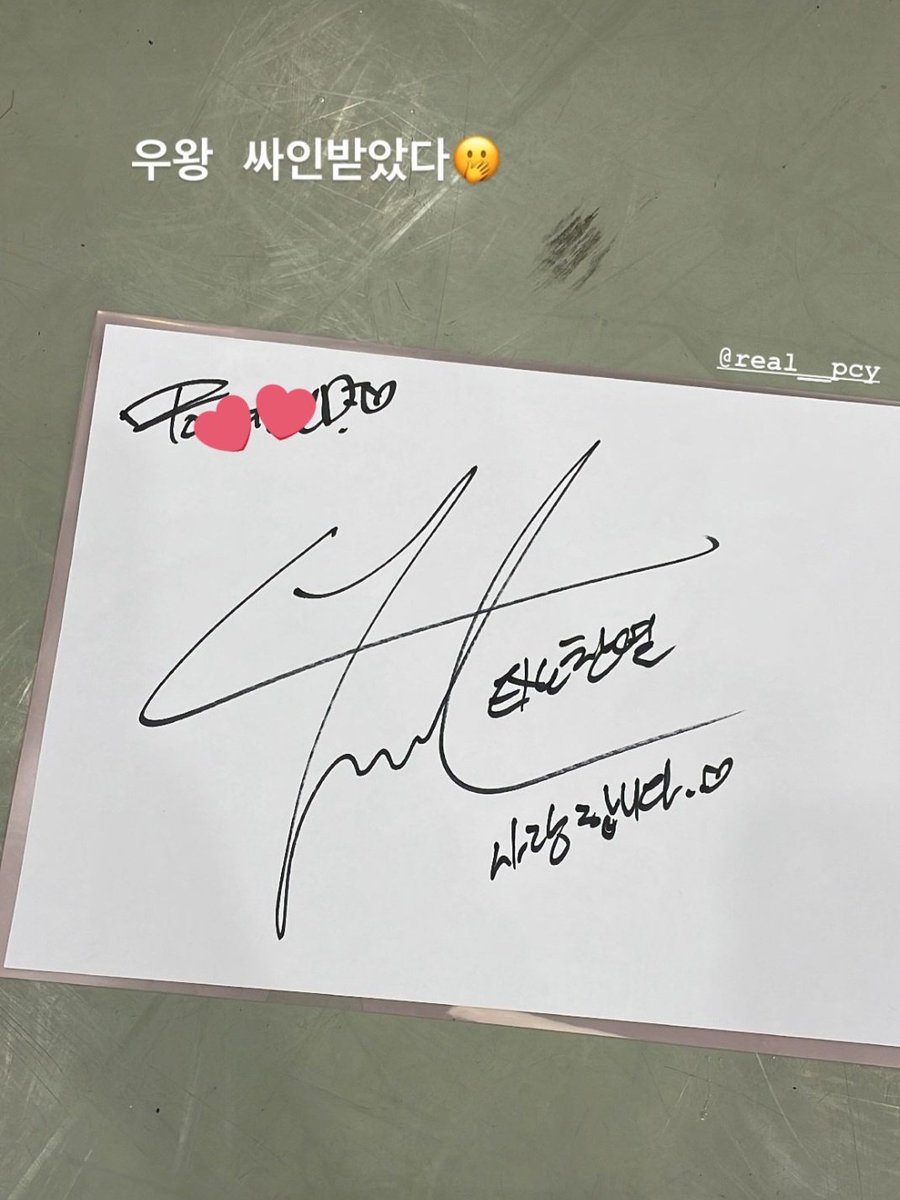 우왕 싸인받았다🤭
@real__pcy
찬열
사랑합니다.♡